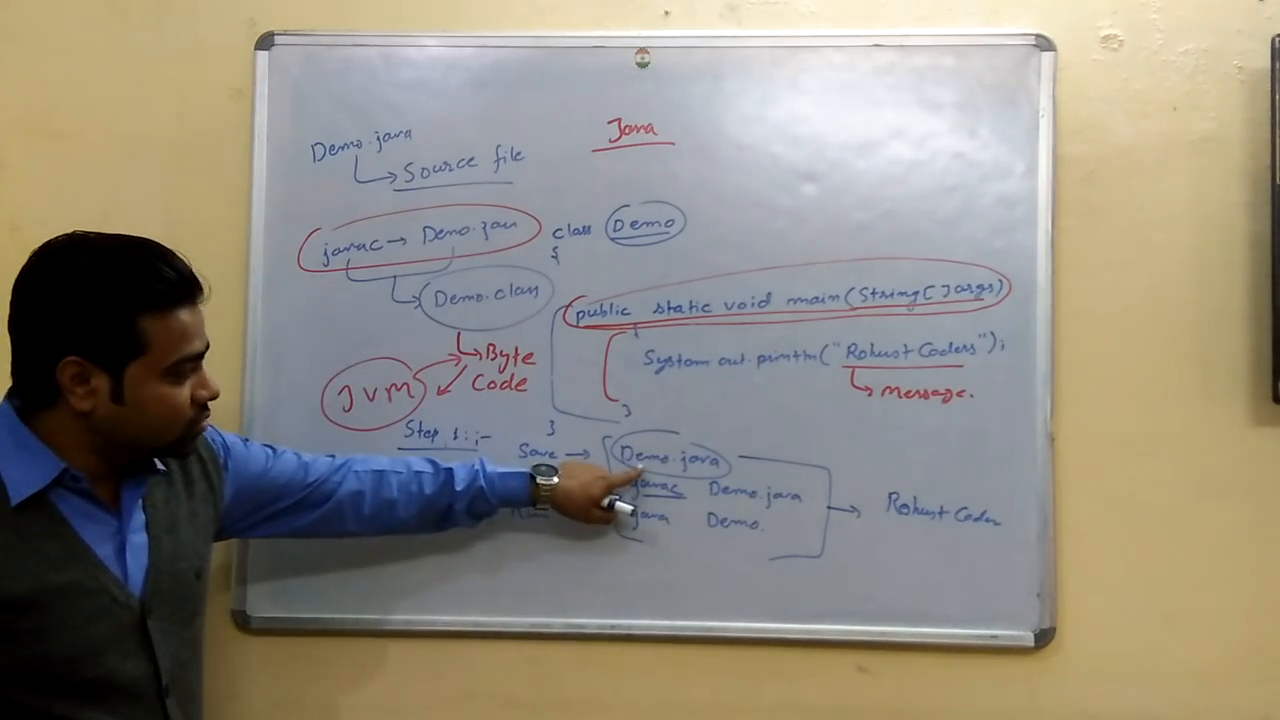 Java
Demo.java
Source file
javac → Demo.java
Demo.class
Byte
Code
JVM
class Demo
{
public static void main(String[]args)
{
System.out.println("Robust Coders");
message.
}
}
Step 1:;-
Save → Demo.java
javac Demo.java
Run java Demo.
Robust Coder